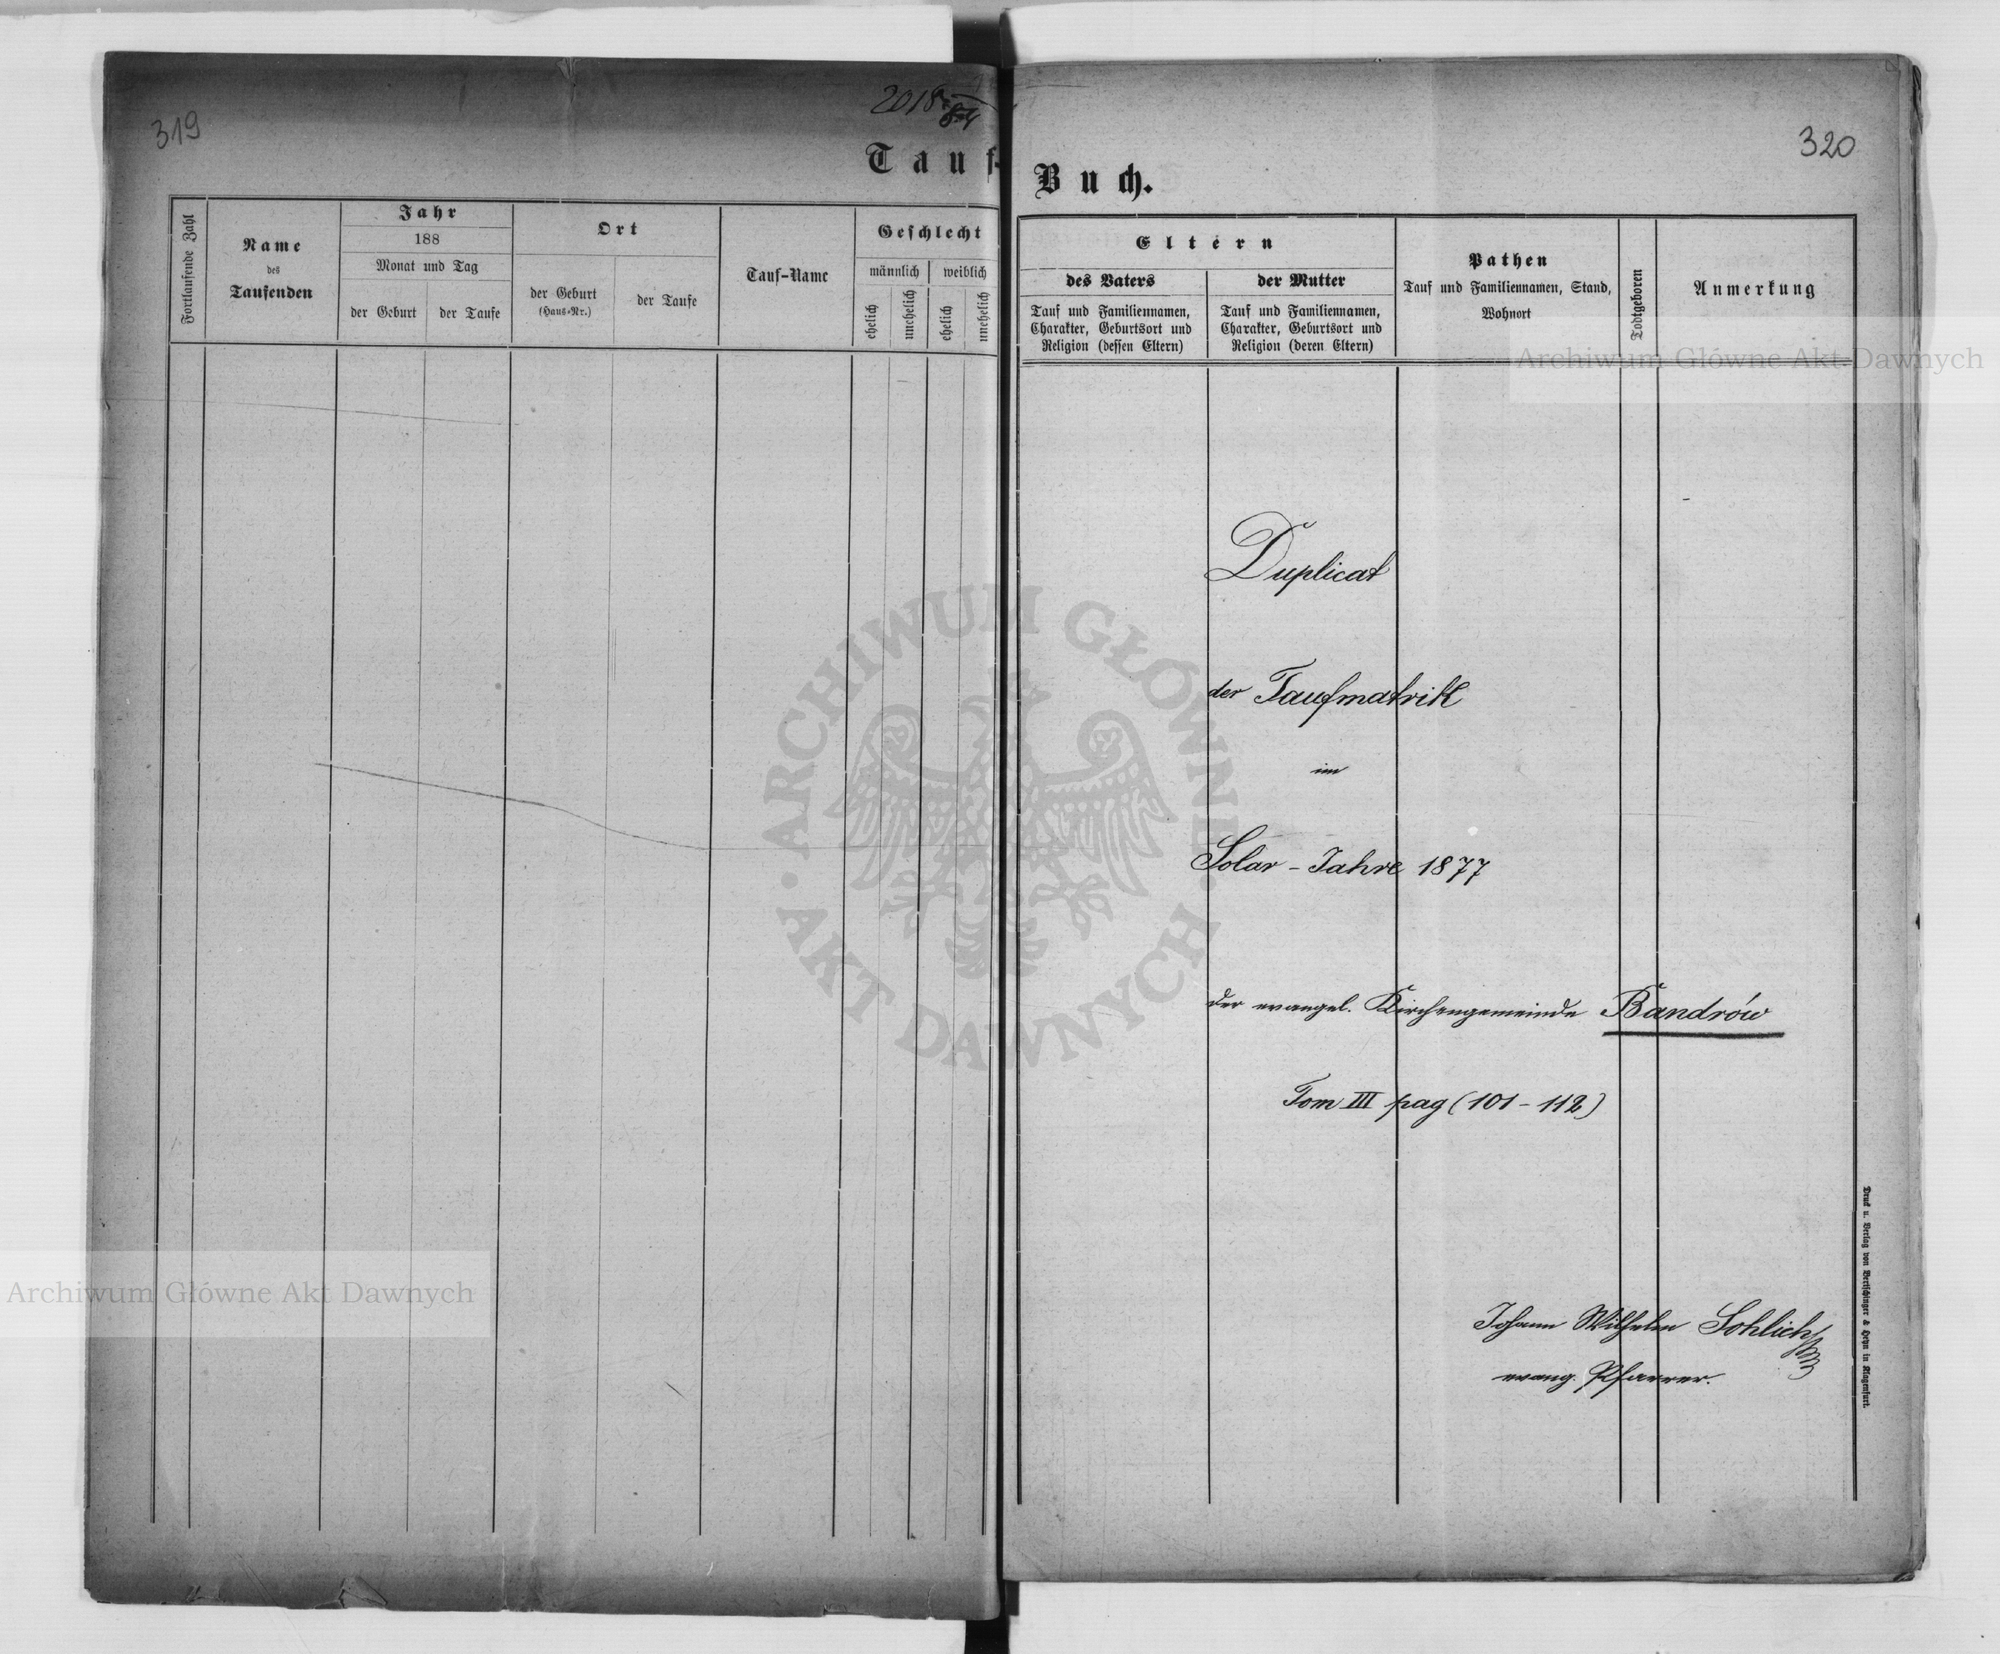 319
2018
84
320
Tauf-
Buch.
Fortlaufende Zahl
Name
des
Taufenden
Jahr
188
Monat und Tag
der Geburt
der Taufe
Ort
der Geburt
(Haus-Nr.)
der Taufe
Tauf-Name
Geschlecht
männlich
weiblich
ehelich
unehelich
ehelich
unehelich
Eltern
des Vaters
Tauf und Familiennamen,
Charakter, Geburtsort und
Religion (dessen Eltern)
der Mutter
Tauf und Familiennamen,
Charakter, Geburtsort und
Religion (deren Eltern)
Pathen
Tauf und Familiennamen, Stand,
Wohnort
Todtgeboren
Anmerkung
Duplicat
der Taufmatrik
im
Solar-Jahre 1877
der evangel. Kirchengemeinde Bandrów
Tom III pag (101-112)
Johann Wilhelm
evang. Pfarrer.
Druck u. Verlag von Bertschinger & Heyn in Klagenfurt.
Archiwum Główne Akt Dawnych
Archiwum Główne Akt Dawnych
ARCHIWUM GŁÓWNE
AKT DAWNYCH